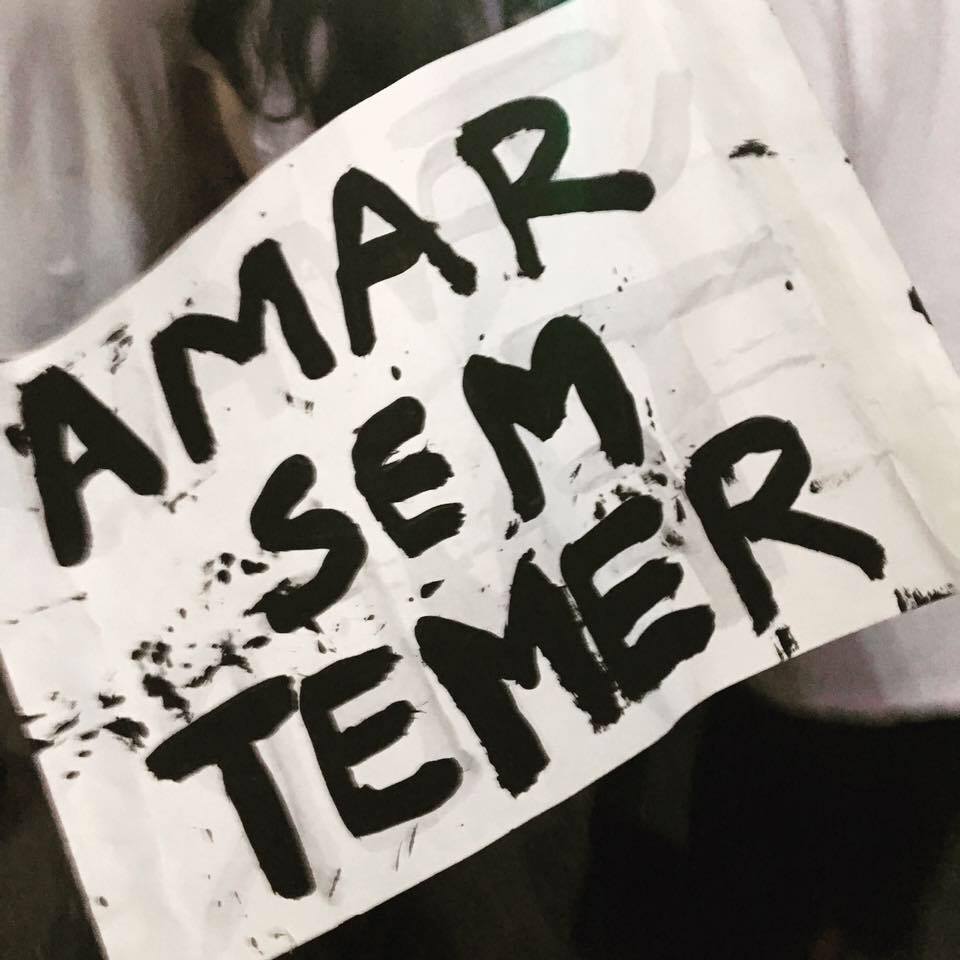 AMAR
SEM
TEMER